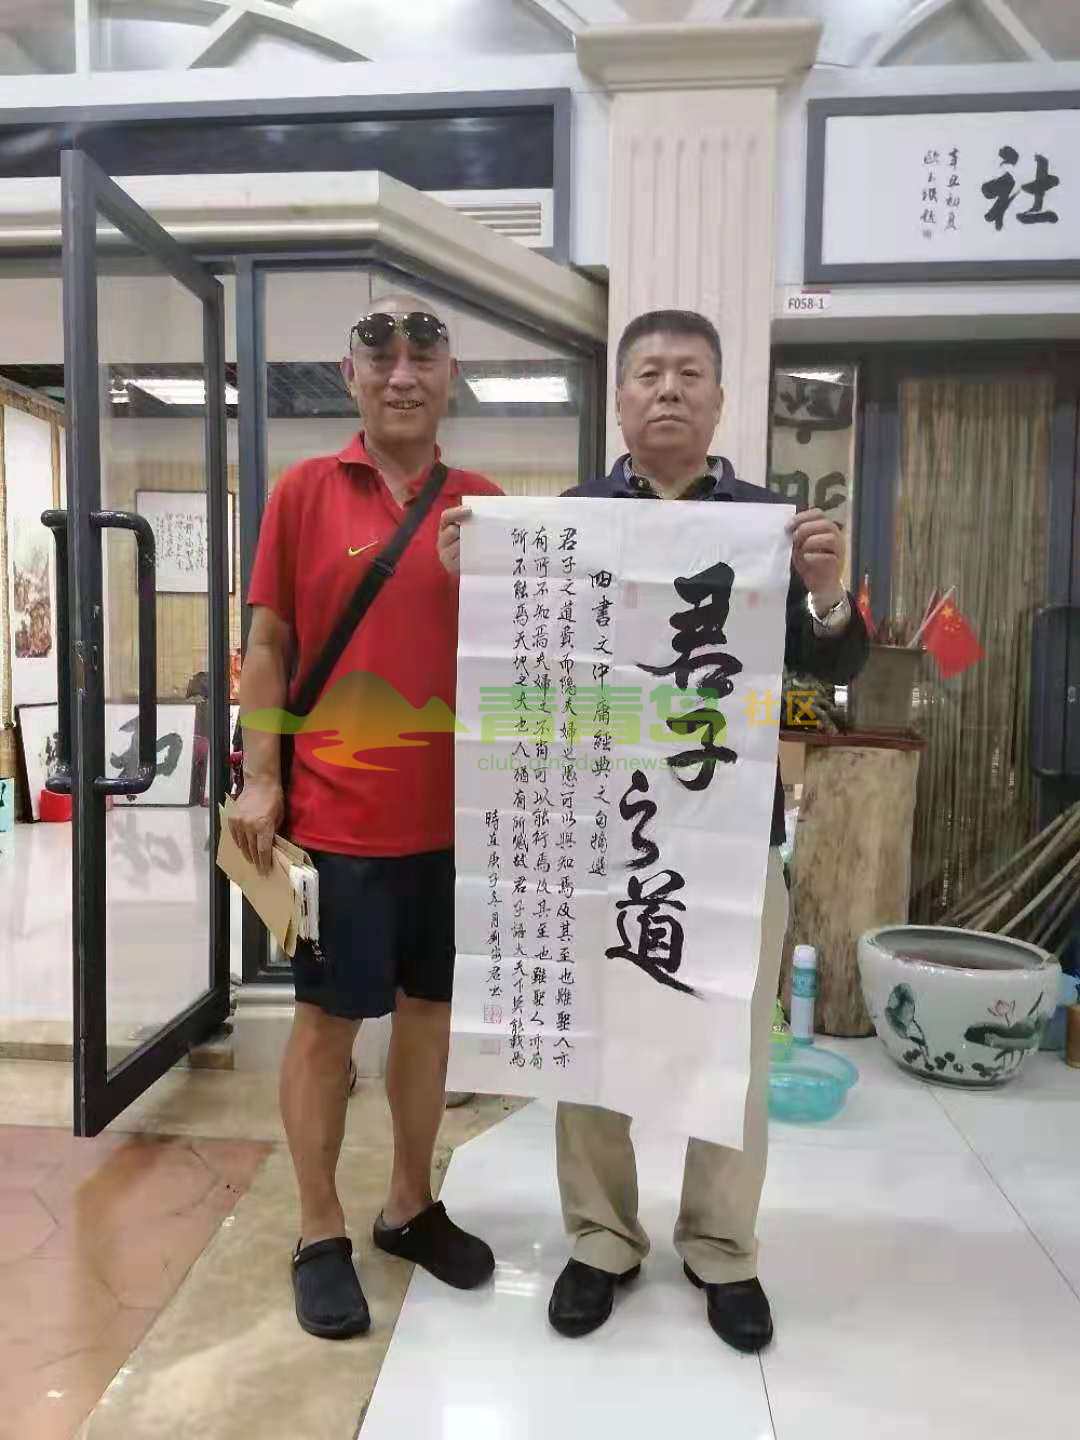 社
辛丑初夏
F058-1
君子之道
四书文中庸經典之句摘选
君子之道費而隐夫婦之愚可以與知焉及其至也雖聖人亦
有所不知焉夫婦之不肖可以能行焉及其至也雖聖人亦有
所不能焉天地之大也人猶有所憾故君子语大天下莫能載焉
時在庚子冬月
青青岛社区
club.qingdaonews.com
和